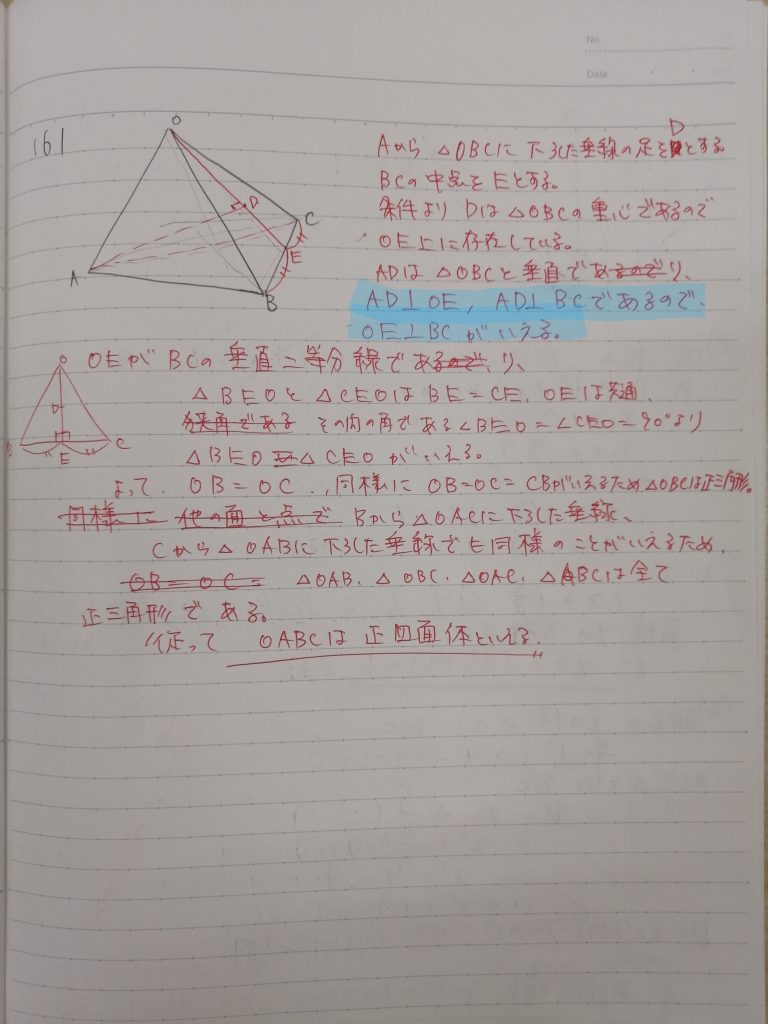 No.
Date
161
O
D
C
E
A
B
Aから △OBCに下ろした垂線の足をDとする。
BCの中点をEとする。
条件より Dは△OBCの重心であるので
OE上に存在している。
ADは△OBCと垂直であるのでり、
AD⊥OE, AD⊥BCであるので、
OE⊥BCがいえる。
OEがBCの垂直二等分線であるので、り、
O
D
B
E
C
△BEOと△CEOはBE=CE, OEは共通.
狭角である その内の角である∠BEO=∠CEO=90°より
△BEO≡△CEOがいえる。
よって、OB=OC.,同様にOB=OC=CBがいえるため△OBCは正三角形。
同様に 他の面と点で Bから△OACに下ろした垂線、
Cから△OABに下ろした垂線でも同様のことがいえるため、
OB=OC= △OAB、△OBC、△OAC、△ABCは全て
正三角形である。
従って OABCは正四面体といえる.